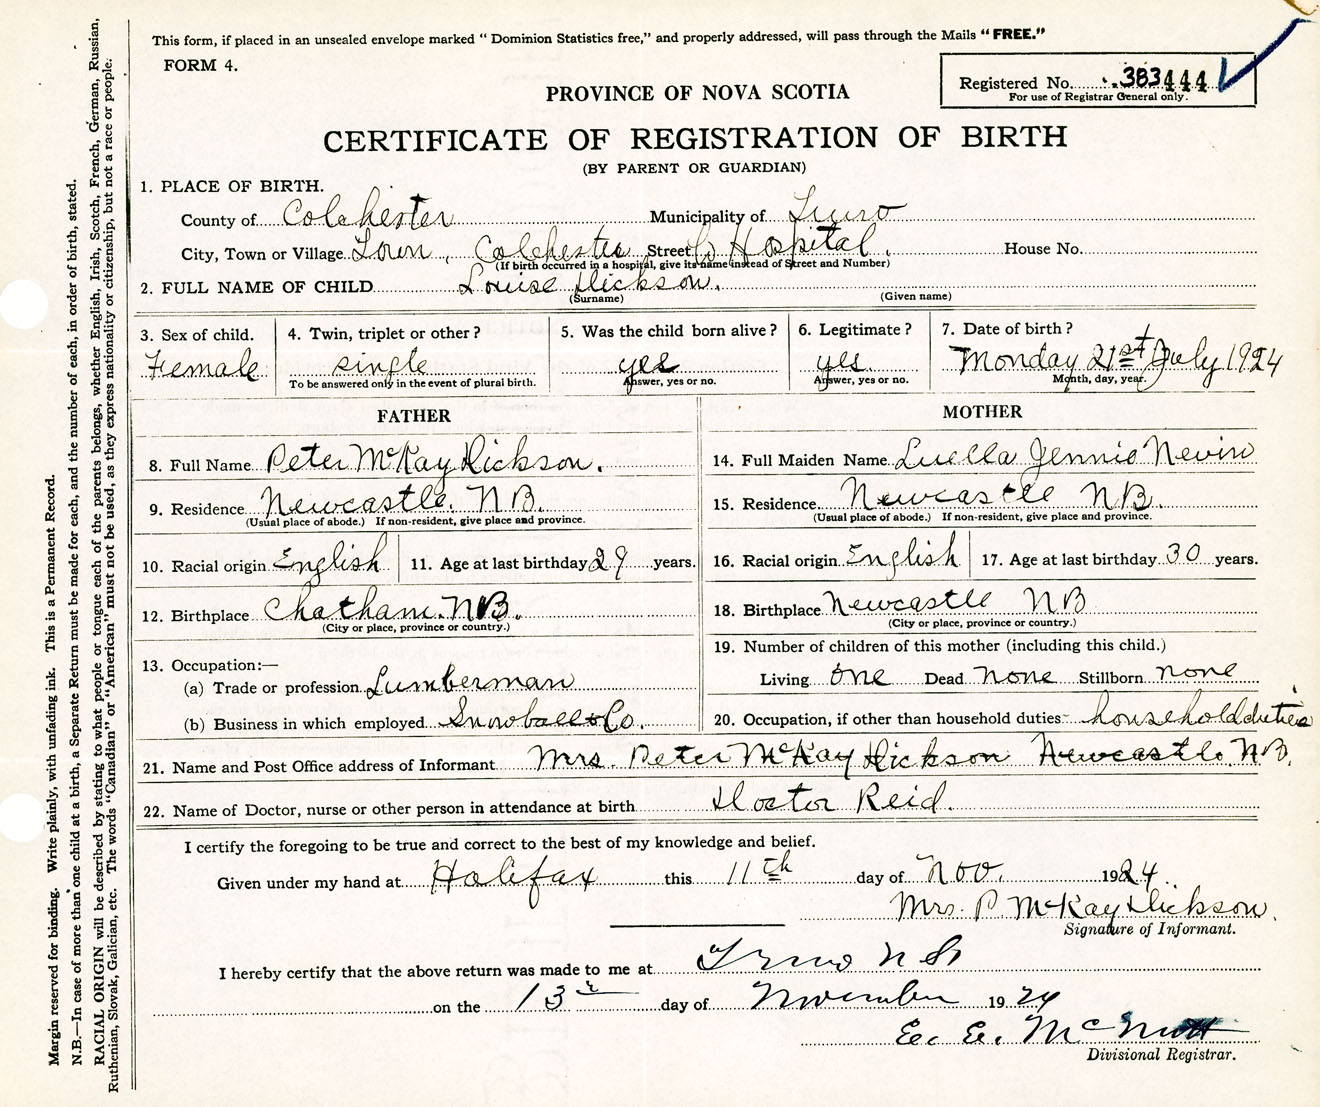 This form, if placed in an unsealed envelope marked “ Dominion Statistics free,” and properly addressed, will pass through the Mails “ FREE.”
FORM 4.
Registered No. 383444
For use of Registrar General only.
PROVINCE OF NOVA SCOTIA
CERTIFICATE OF REGISTRATION OF BIRTH
(BY PARENT OR GUARDIAN)
1. PLACE OF BIRTH.
County of Colchester Municipality of Truro
City, Town or Village Town, Colchester Street Co Hospital. House No.
(If birth occurred in a hospital, give its name instead of Street and Number)
2. FULL NAME OF CHILD Louise Dickson.
(Surname) (Given name)
3. Sex of child. 4. Twin, triplet or other ? 5. Was the child born alive ? 6. Legitimate ? 7. Date of birth ?
Female single yes yes. Monday 21st July 1924
To be answered only in the event of plural birth. Answer, yes or no. Answer, yes or no. Month, day, year.
FATHER
8. Full Name Peter McKay Dickson.
9. Residence Newcastle. N.B.
(Usual place of abode.) If non-resident, give place and province.
10. Racial origin English 11. Age at last birthday 29 years.
12. Birthplace Chatham. N.B.
(City or place, province or country.)
13. Occupation:—
(a) Trade or profession Lumberman
(b) Business in which employed Snowball & Co.
MOTHER
14. Full Maiden Name Luella Jennie Nevin
15. Residence Newcastle N.B.
(Usual place of abode.) If non-resident, give place and province.
16. Racial origin English 17. Age at last birthday 30 years.
18. Birthplace Newcastle N B
(City or place, province or country.)
19. Number of children of this mother (including this child.)
Living one Dead none Stillborn none
20. Occupation, if other than household duties household duties
21. Name and Post Office address of Informant Mrs. Peter McKay Dickson Newcastle. N.B.
22. Name of Doctor, nurse or other person in attendance at birth Doctor Reid.
I certify the foregoing to be true and correct to the best of my knowledge and belief.
Given under my hand at Halifax this 11th day of Nov. 1924.
Mrs. P. McKay Dickson.
Signature of Informant.
I hereby certify that the above return was made to me at Truro N S
on the 13 day of November 1924
E. E. McNutt
Divisional Registrar.
Margin reserved for binding. Write plainly, with unfading ink. This is a Permanent Record.
N.B.—In case of more than one child at a birth, a Separate Return must be made for each, and the number of each, in order of birth, stated.
RACIAL ORIGIN will be described by stating to what people or tongue each of the parents belongs, whether English, Irish, Scotch, French, German, Russian,
Ruthenian, Slovak, Galician, etc. The words “Canadian” or “American” must not be used, as they express nationality or citizenship, but not a race or people.